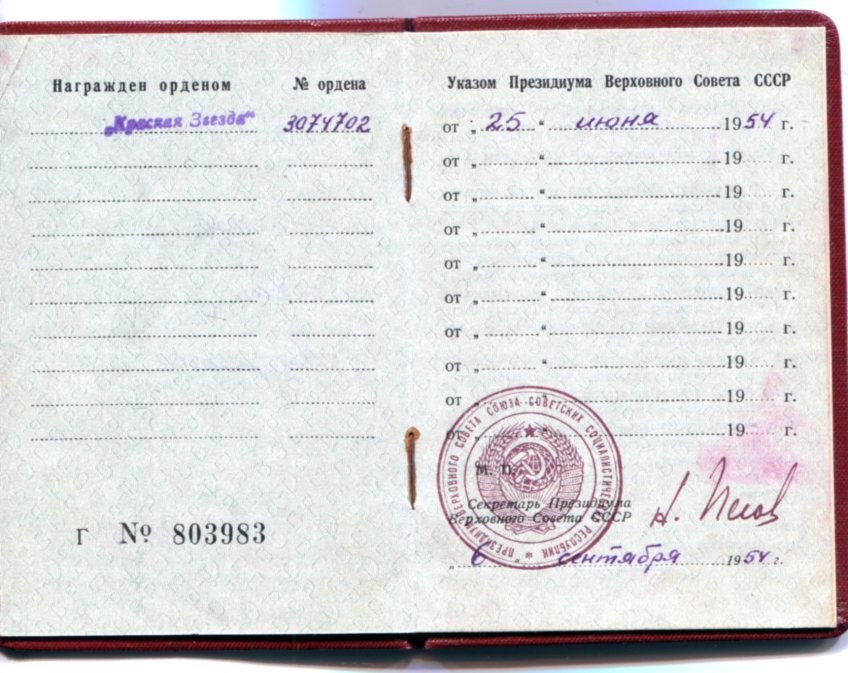 Награжден орденом
№ ордена
„Красная Звезда“
3074702
Г № 803983
Указом Президиума Верховного Совета СССР
от „ 25 “ июня 1954 г.
от „ “ 19 г.
от „ “ 19 г.
от „ “ 19 г.
от „ “ 19 г.
от „ “ 19 г.
от „ “ 19 г.
от „ “ 19 г.
от „ “ 19 г.
от „ “ 19 г.
М. П.
Секретарь Президиума
Верховного Совета СССР
Н. Пегов
„ 6 “ сентября 1954 г.
ПРЕЗИДИУМ ВЕРХОВНОГО СОВЕТА СОЮЗА СОВЕТСКИХ СОЦИАЛИСТИЧЕСКИХ РЕСПУБЛИК